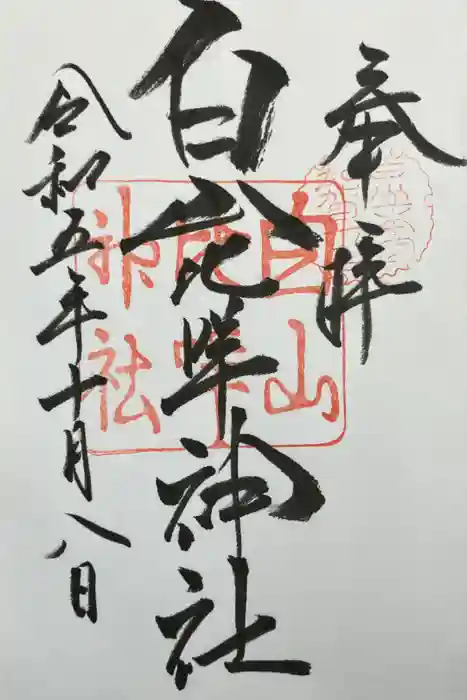 奉拝
白山比咩神社
令和五年十月八日
白山
比咩
神社